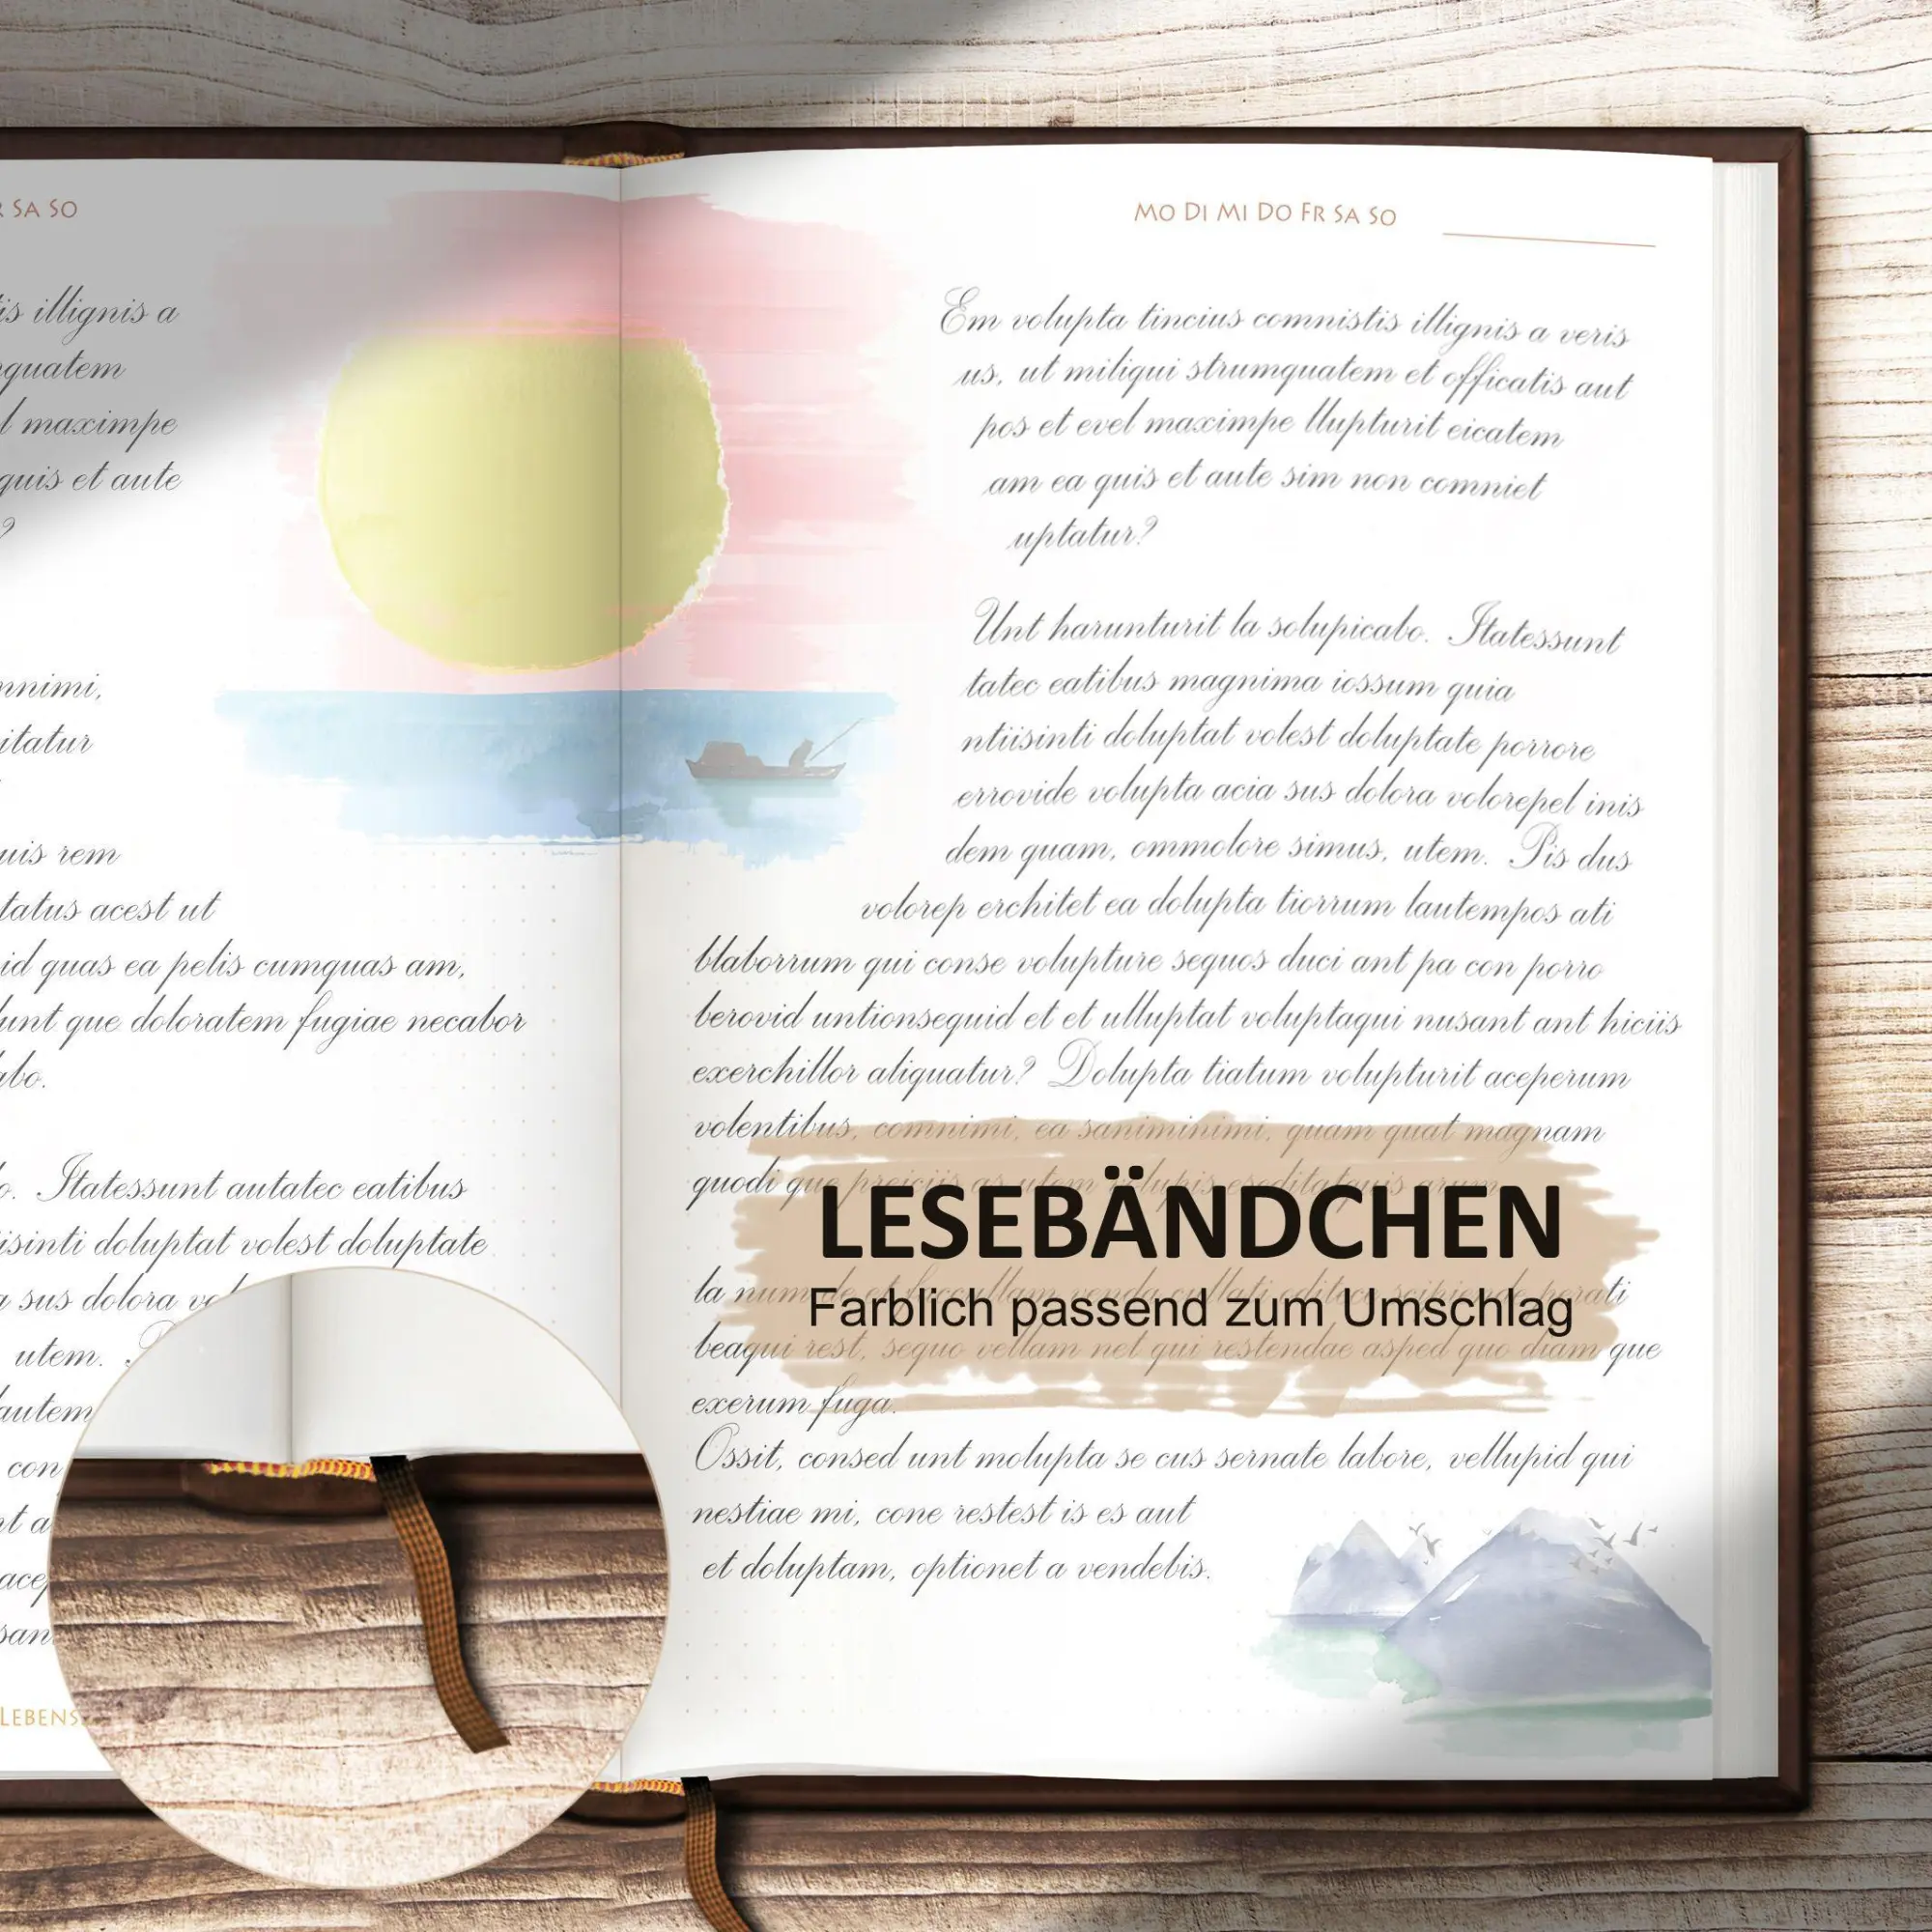 SA SO
is illignis a
quatem
l maximpe
quis et aute
?
nnimi,
itatur
uis rem
tatus acest ut
id quas ea pelis cumquas am,
unt que doloratem fugiae necabor
abo.
o. Itatessunt autatec eatibus
isinti doluptat volest doluptate
a sus dolora vol
utem.
autem
con
nt a
acep
san
LEBENS
MO DI MI DO FR SA SO
Em volupta tincius comnistis illignis a veris
us, ut miliqui strumquatem et officatis aut
pos et evel maximpe llupturit eicatem
am ea quis et aute sim non comniet
uptatur?
Unt harunturit la solupicabo. Itatessunt
tatec eatibus magnima iossum quia
ntiisinti doluptat volest doluptate porrore
errovide volupta acia sus dolora volorepel inis
dem quam, ommolore simus, utem. Pis dus
volorep erchitet ea dolupta tiorrum lautempos ati
blaborrum qui conse volupture sequos duci ant pa con porro
berovid untionsequid et et ulluptat voluptaqui nusant ant hiciis
exerchillor aliquatur? Dolupta tiatum volupturit aceperum
volentibus, comnimi, ea saniminimi, quam quat magnam
quodi que preiciis as utem volupis eseditatquis arum
LESEBÄNDCHEN
la num
Farblich passend zum Umschlag
beaqui rest, sequo vellam net qui restendae asped quo diam que
exerum fuga.
Ossit, consed unt molupta se cus sernate labore, vellupid qui
nestiae mi, cone restest is es aut
et doluptam, optionet a vendebis.